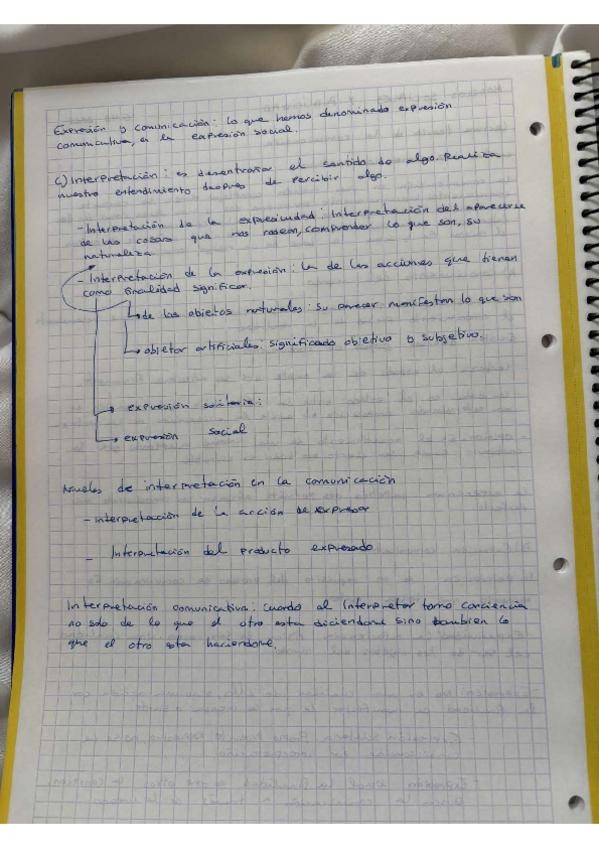 Expresión y comunicación: lo que hemos denominado expresión
comunicativa, es la expresión social.
C) Interpretación: es desentrañar el sentido de algo. Realiza
nuestro entendimiento despues de percibir algo.
- Interpretación de la expresividad: Interpretación del aparecerse
de las cosas que nos rodean, comprender lo que son, su
naturaleza
- Interpretación de la expresión: la de las acciones que tienen
como finalidad significar.
de los objetos naturales: su parecer manifestan lo que son
objetos artificiales: significado objetivo o subjetivo.
expresión solitaria:
expresión social
Niveles de interpretación en la comunicación
- Interpretación de la acción de expresar
- Interpretación del producto expresado
Interpretación comunicativa: cuando el interpretor toma conciencia
no solo de lo que el otro esta diciendome sino tambien lo
que el otro esta haciendome.